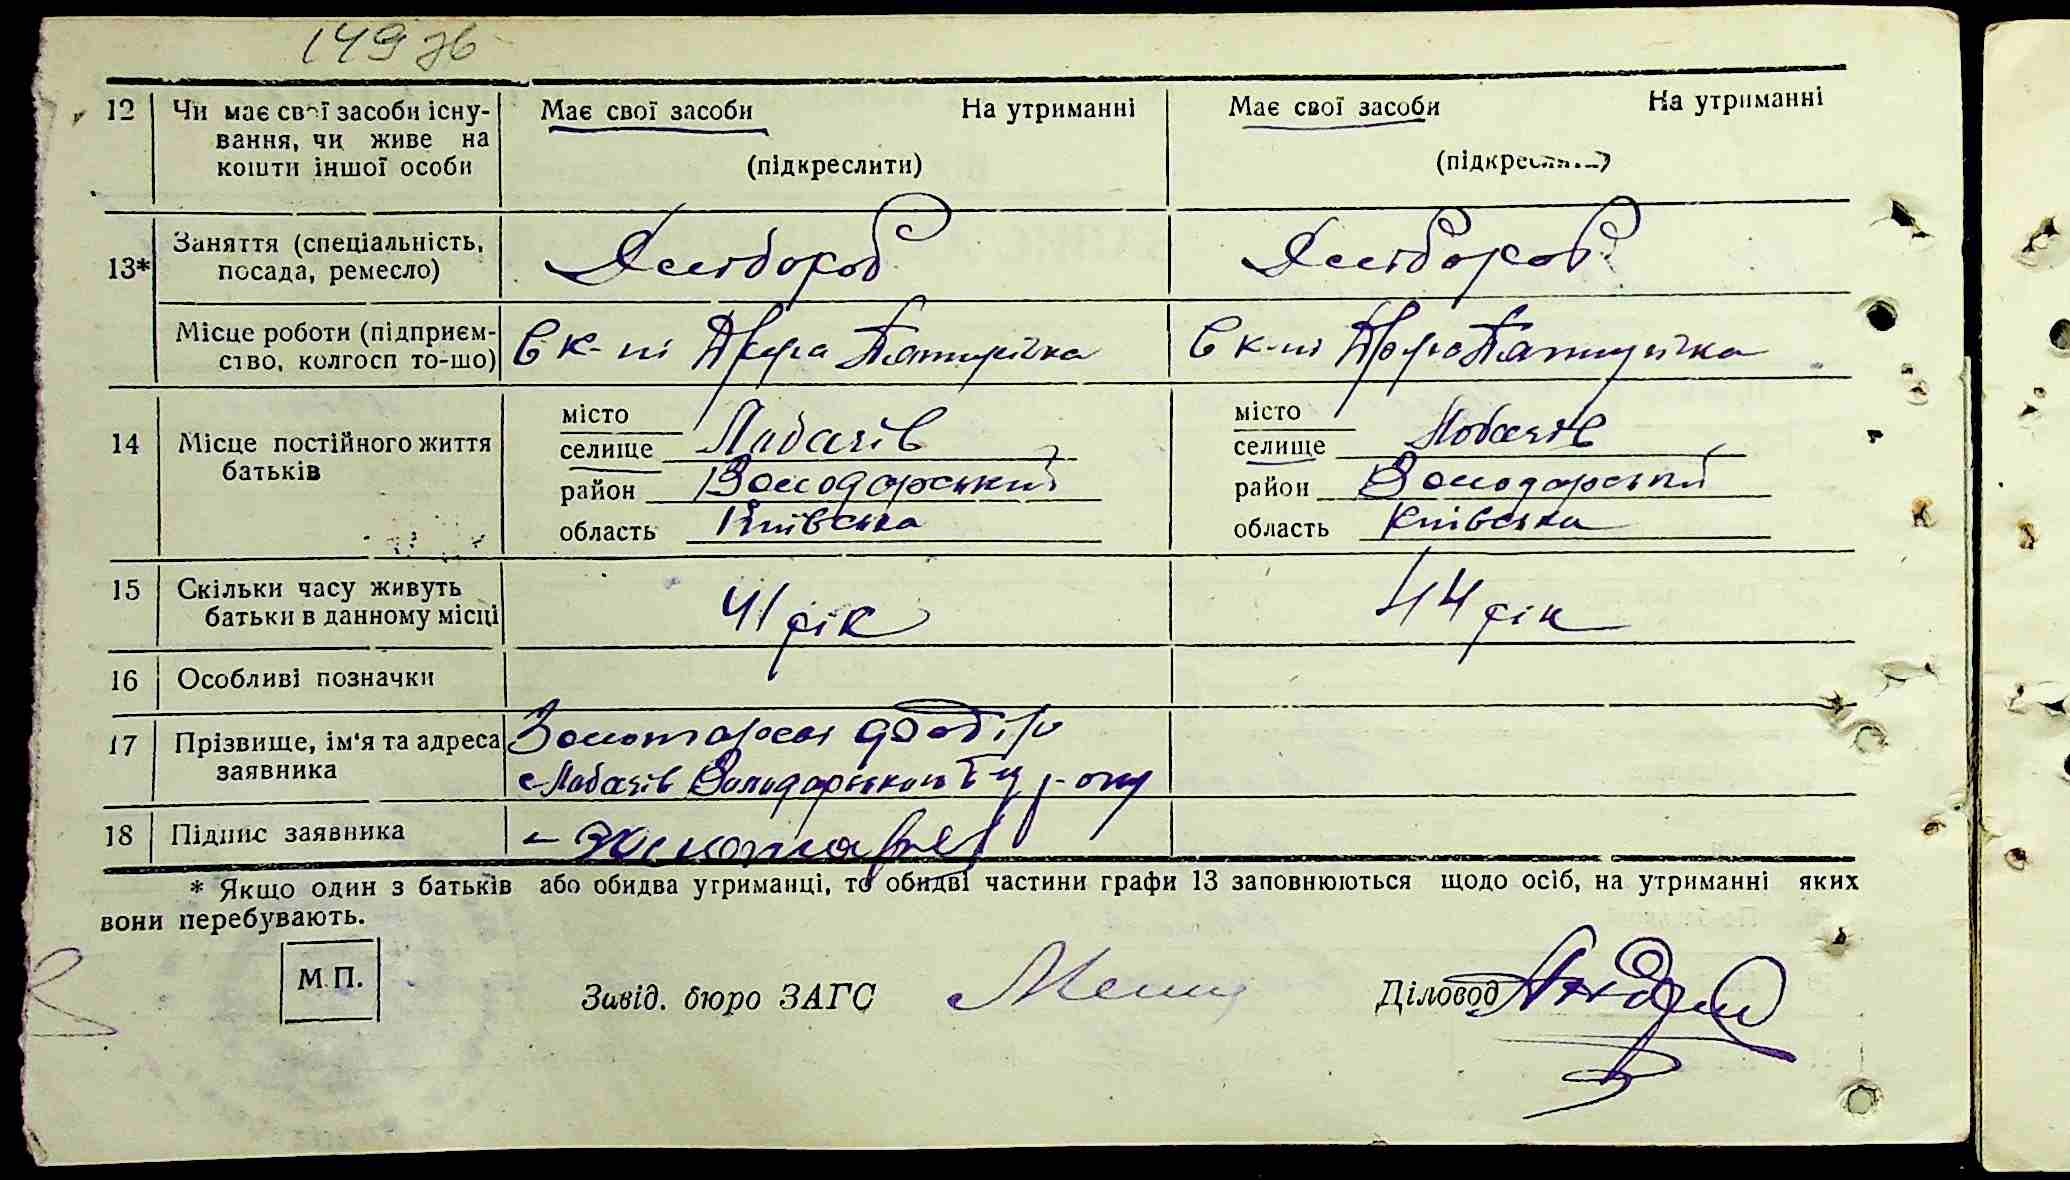 149 зв
12 Чи має свої засоби існування, чи живе на кошти іншої особи
Має свої засоби На утриманні Має свої засоби На утриманні
(підкреслити) (підкреслити)
13* Заняття (спеціальність, посада, ремесло) Хлібороб Хлібороб
Місце роботи (підприємство, колгосп то-що) В к-пі В к-пі
14 Місце постійного життя батьків
місто місто
селище Лобачів селище Лобачів
район Володарський район Володарський
область Київська область Київська
15 Скільки часу живуть батьки в данному місці 41 рік 44 рік
16 Особливі позначки
17 Прізвище, ім'я та адреса заявника Золотарьов
с Лобачів Володарського р-ону
18 Підпис заявника
* Якщо один з батьків або обидва утриманці, то обидві частини графи 13 заповнюються щодо осіб, на утриманні яких
вони перебувають.
М.П.
Завід. бюро ЗАГС Діловод